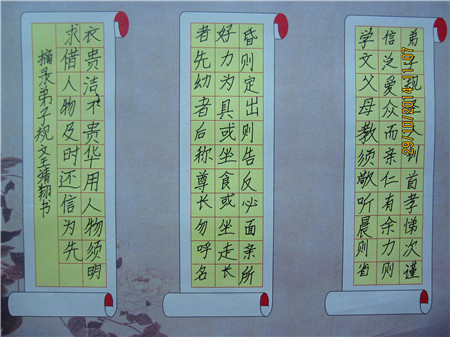 弟子规圣人训首孝悌次谨
信泛爱众而亲仁有余力则
学文父母教须敬听晨则省
昏则定出则告反必面亲所
好力为具或坐食或坐走长
者先幼者后称尊长勿呼名
衣贵洁不贵华用人物须明
求借人物及时还信为先
摘录弟子规文王清翔书